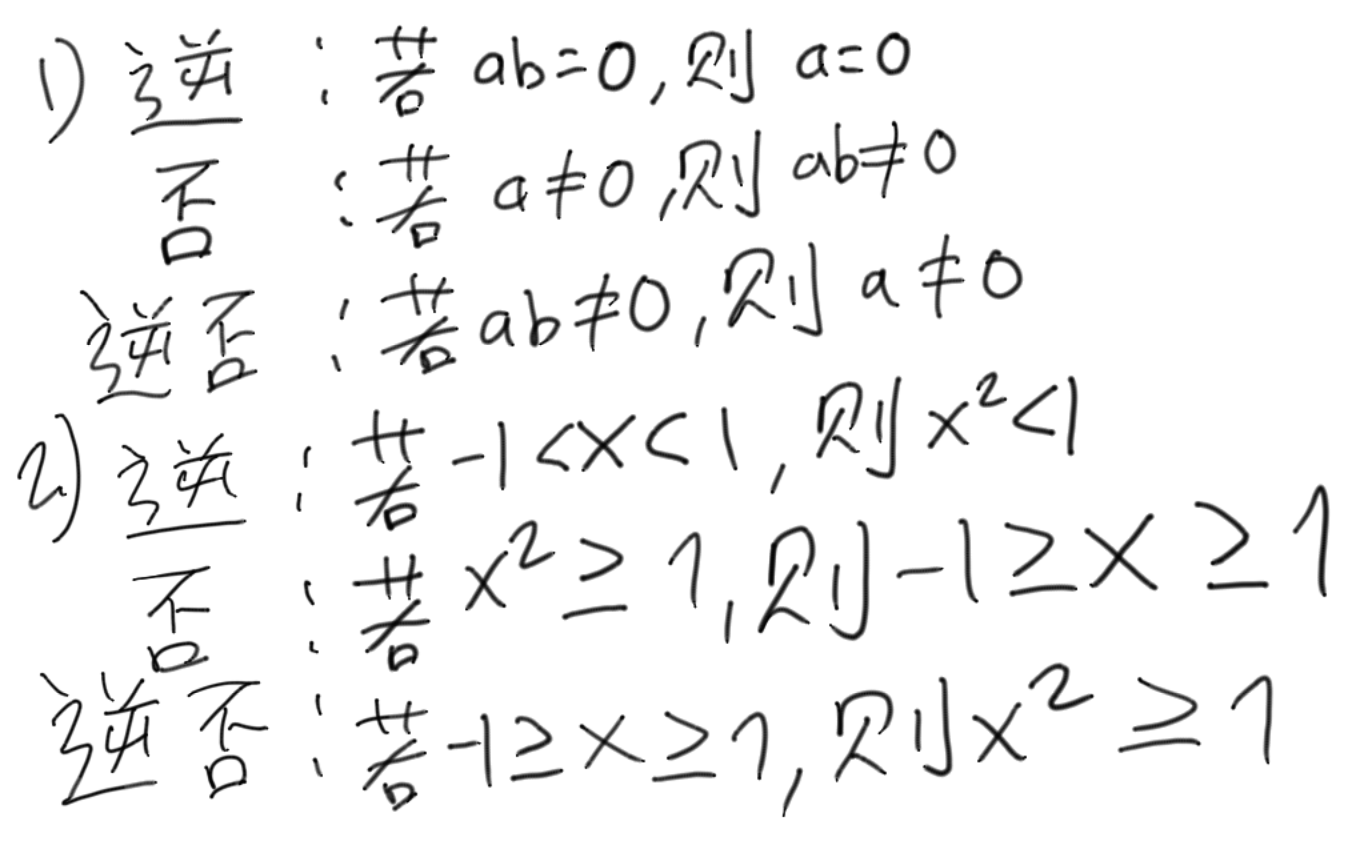 1) 逆 : 若 ab=0, 则 a=0
否 : 若 a≠0, 则 ab≠0
逆否 : 若 ab≠0, 则 a≠0
2) 逆 : 若 -1<x<1, 则 x²<1
否 : 若 x²≥1, 则 -1≥x≥1
逆否 : 若 -1≥x≥1, 则 x²≥1